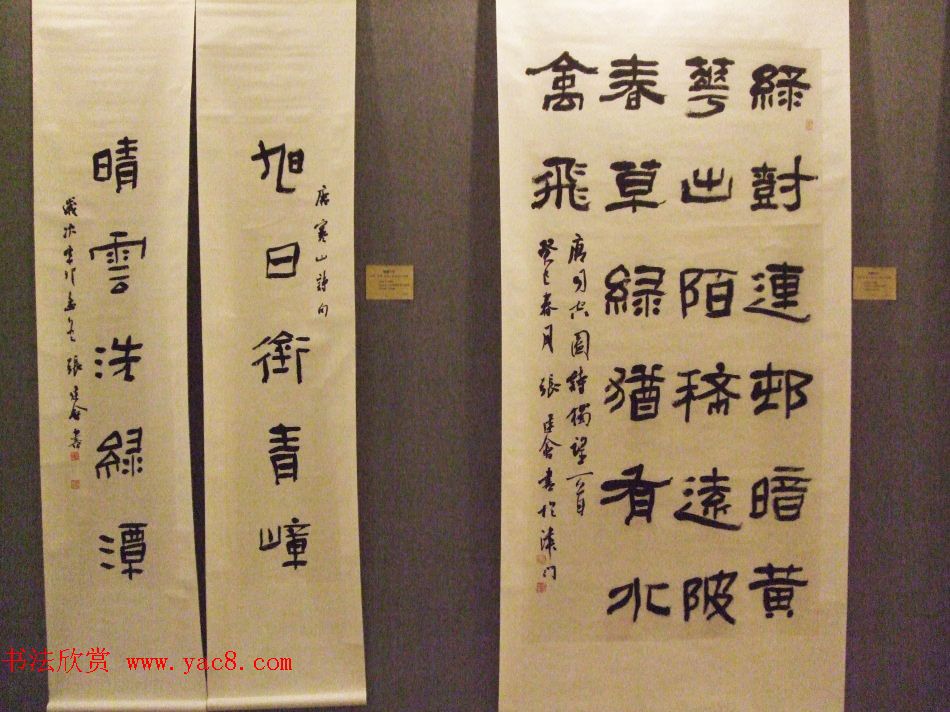 綠對連邨暗黃
華出陌稀遠陂
春草綠猶有水
禽飛
唐司空圖詩獨望一首
癸巳春月張建會書於津門
唐寒山詩句
旭日銜青嶂
晴雲洗綠潭
歲次 張建會書
书法欣赏 www.yac8.com